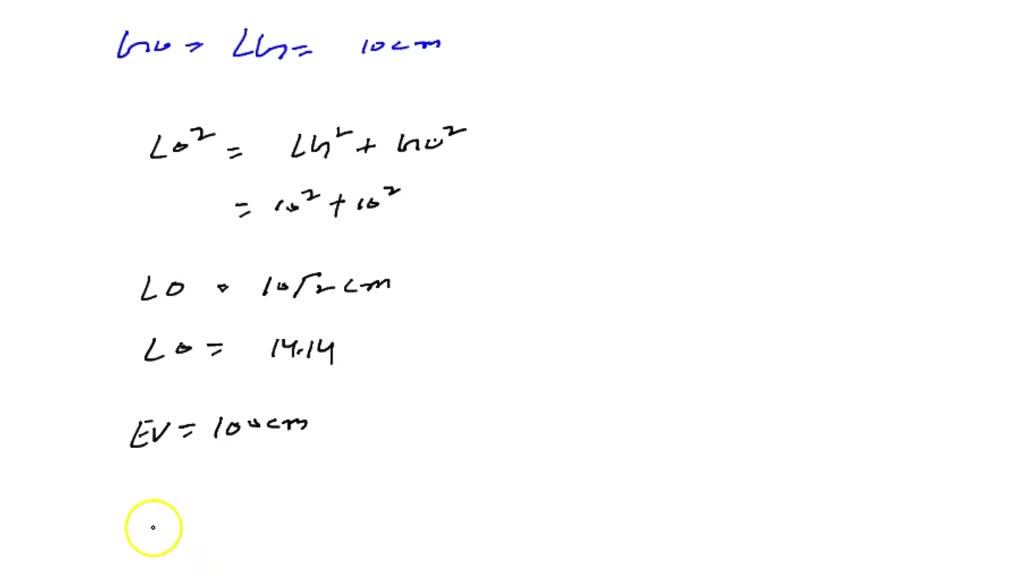 ho = Lh = 10 cm
Lo² = Lh² + ho²
= 10² + 10²
Lo = 10√2 cm
Lo = 14.14
EV = 100 cm